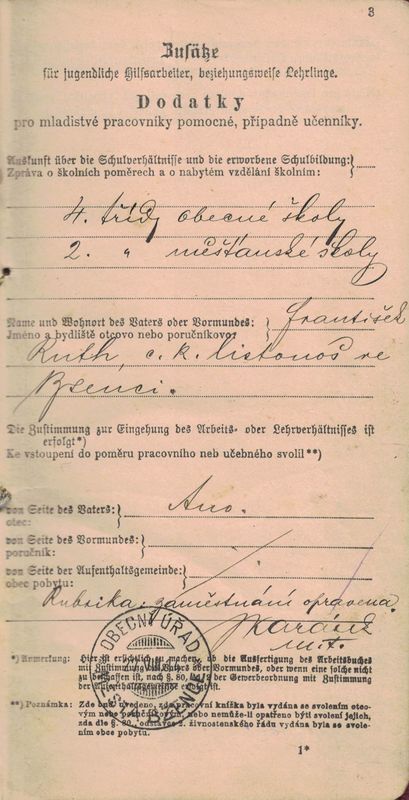 3
Zusätze
für jugendliche Hilfsarbeiter, beziehungsweise Lehrlinge.
Dodatky
pro mladistvé pracovníky pomocné, případně učenníky.
Auskunft über die Schulverhältnisse und die erworbene Schulbildung:
Zpráva o školních poměrech a o nabytém vzdělání školním:
4. třídy obecné školy
2. " měšťanské školy
Name und Wohnort des Vaters oder Vormundes:
Jméno a bydliště otcovo nebo poručníkovo:
František
Ruth, c. k. listonoš ve
Bzenci.
Die Zustimmung zur Eingehung des Arbeits- oder Lehrverhältnisses ist
erfolgt*)
Ke vstoupení do poměru pracovního neb učebného svolil**)
von Seite des Vaters:
otec:
Ano.
von Seite des Vormundes:
poručník:
von Seite der Aufenthaltsgemeinde:
obec pobytu:
Rubrika: zaměstnání opravena.
OBECNÍ ÚŘAD
*) Anmerkung: Hier ist ersichtlich zu machen, ob die Ausfertigung des Arbeitsbuches
mit Zustimmung des Vaters oder Vormundes, oder wenn eine solche nicht
zu beschaffen ist, nach §. 80, der Gewerbeordnung mit Zustimmung
der Aufenthaltsgemeinde erfolgt ist.
**) Poznámka: Zde buď uvedeno, zda pracovní knížka byla vydána se svolením otco-
vým nebo poručníkovým, nebo nemůže-li opatřeno býti svolení jejich,
zda dle §. 80, odstavce 2. živnostenského řádu vydána byla se svole-
ním obce pobytu.
1*